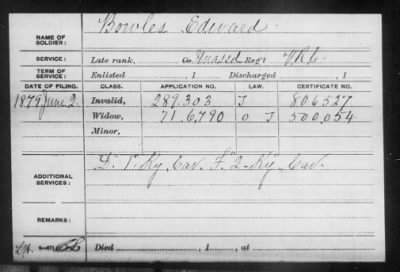 NAME OF SOLDIER: Bowles Edward
SERVICE: Late rank, Co. Unassd Reg't V.R.C.
TERM OF SERVICE: Enlisted , 1 Discharged , 1
DATE OF FILING. CLASS. APPLICATION NO. LAW. CERTIFICATE NO.
1879 June 2. Invalid, 289.303 J 806527
Widow, 716,790 O J 500,054
Minor,
ADDITIONAL SERVICES: D. 1" Ky Cav. F. 2. Ky Cav.
REMARKS:
Died , 1 , at